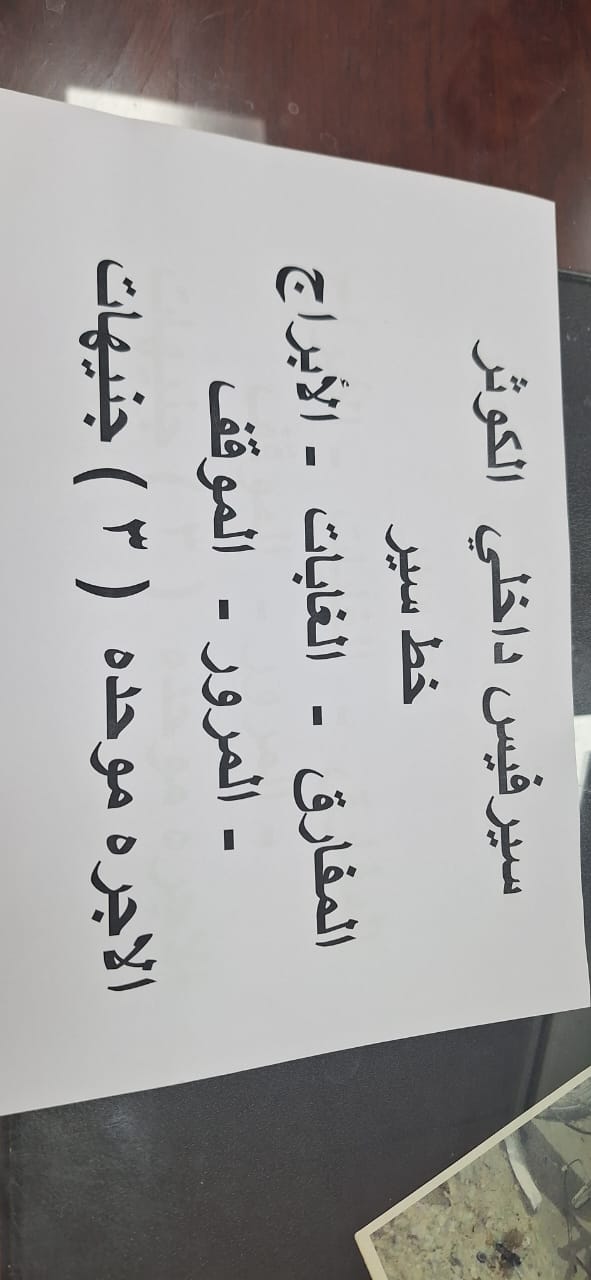 سيرفيس داخلي الكوثر
خط سير
المفارق - الغابات - الأبراج
- المرور - الموقف
الاجره موحده ( ٣ ) جنيهات